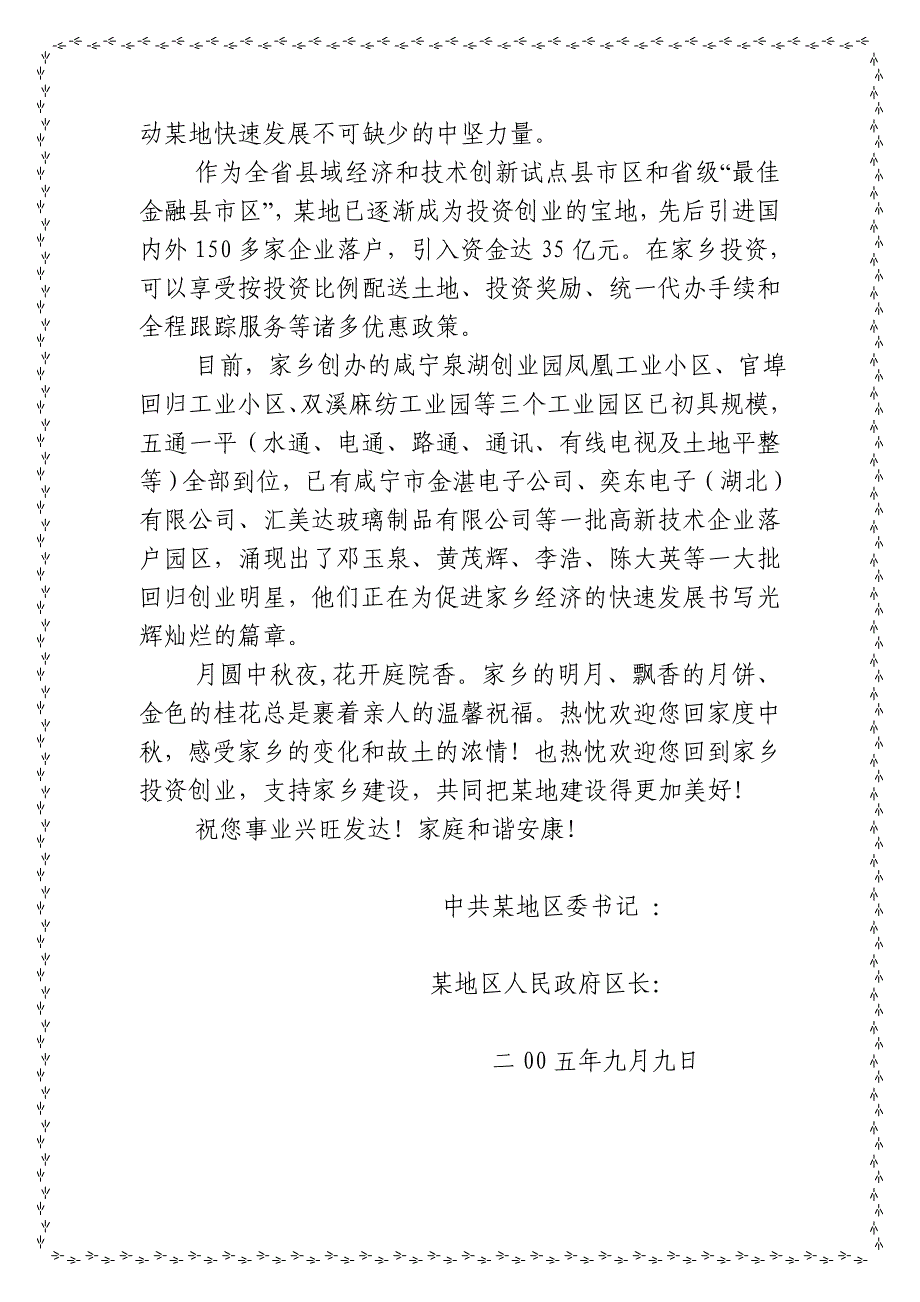 动某地快速发展不可缺少的中坚力量。
作为全省县域经济和技术创新试点县市区和省级“最佳
金融县市区”，某地已逐渐成为投资创业的宝地，先后引进国
内外 150 多家企业落户，引入资金达 35 亿元。在家乡投资，
可以享受按投资比例配送土地、投资奖励、统一代办手续和
全程跟踪服务等诸多优惠政策。
目前，家乡创办的咸宁泉湖创业园凤凰工业小区、官埠
回归工业小区、双溪麻纺工业园等三个工业园区已初具规模，
五通一平（水通、电通、路通、通讯、有线电视及土地平整
等）全部到位，已有咸宁市金湛电子公司、奕东电子（湖北）
有限公司、汇美达玻璃制品有限公司等一批高新技术企业落
户园区，涌现出了邓玉泉、黄茂辉、李浩、陈大英等一大批
回归创业明星，他们正在为促进家乡经济的快速发展书写光
辉灿烂的篇章。
月圆中秋夜,花开庭院香。家乡的明月、飘香的月饼、
金色的桂花总是裹着亲人的温馨祝福。热忱欢迎您回家度中
秋，感受家乡的变化和故土的浓情！也热忱欢迎您回到家乡
投资创业，支持家乡建设，共同把某地建设得更加美好！
祝您事业兴旺发达！家庭和谐安康！
中共某地区委书记 ：
某地区人民政府区长：
二 00 五年九月九日